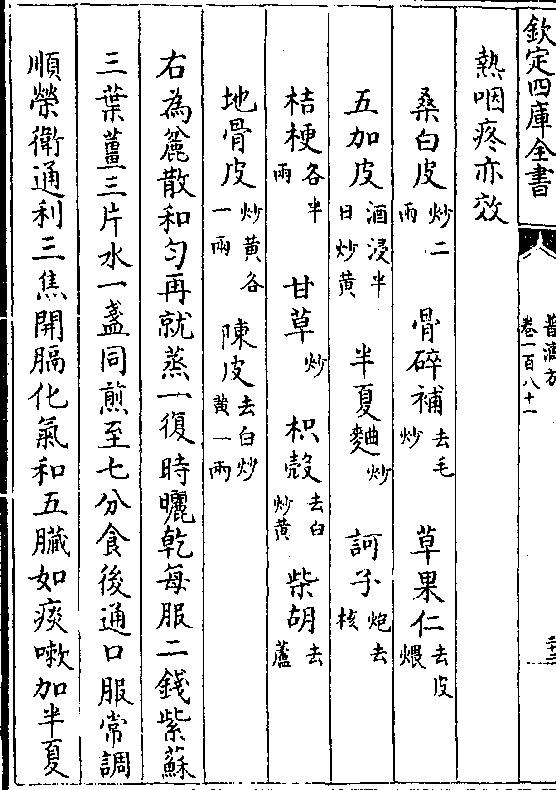 欽定四庫全書
普濟方
卷一百八十一
熱咽疼亦效
桑白皮炒二兩 骨碎補去毛炒 草果仁去皮煨
五加皮酒浸半日炒黄 半夏麯炒 訶子炮去核
桔梗各半兩 甘草炒 枳殼去白炒黄 柴胡去蘆
地骨皮炒黄各一兩 陳皮去白炒黄一兩
右為麄散和匀再就蒸一復時曬乾每服二錢紫蘇
三葉薑三片水一盞同煎至七分食後通口服常調
順榮衛通利三焦開膈化氣和五臟如痰嗽加半夏